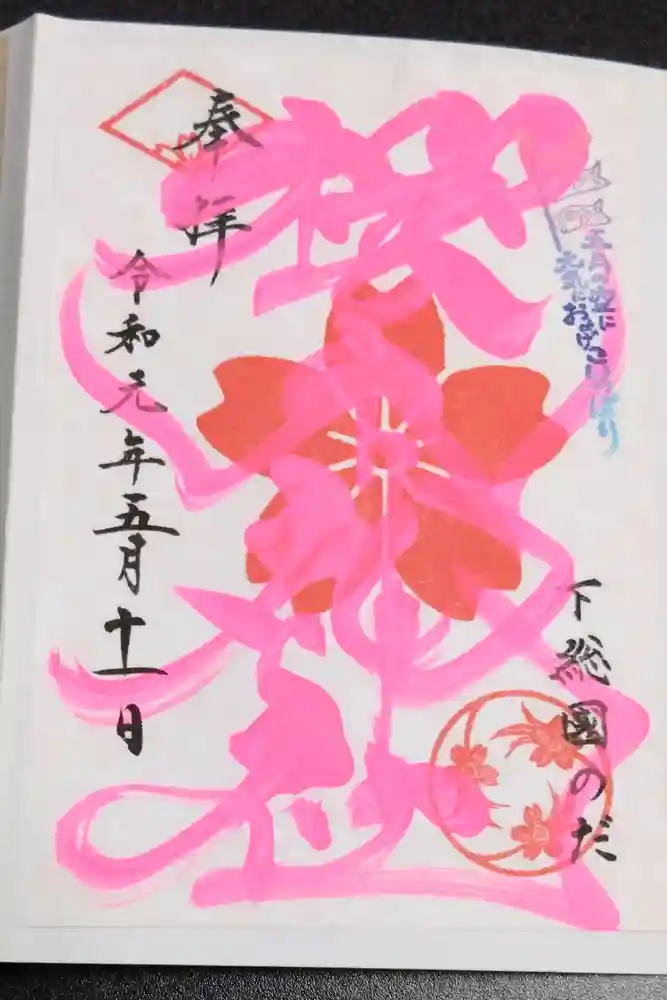 五月の空に
元気におよげこいのぼり
下総國のだ
櫻木神社
奉拝
令和元年五月十一日